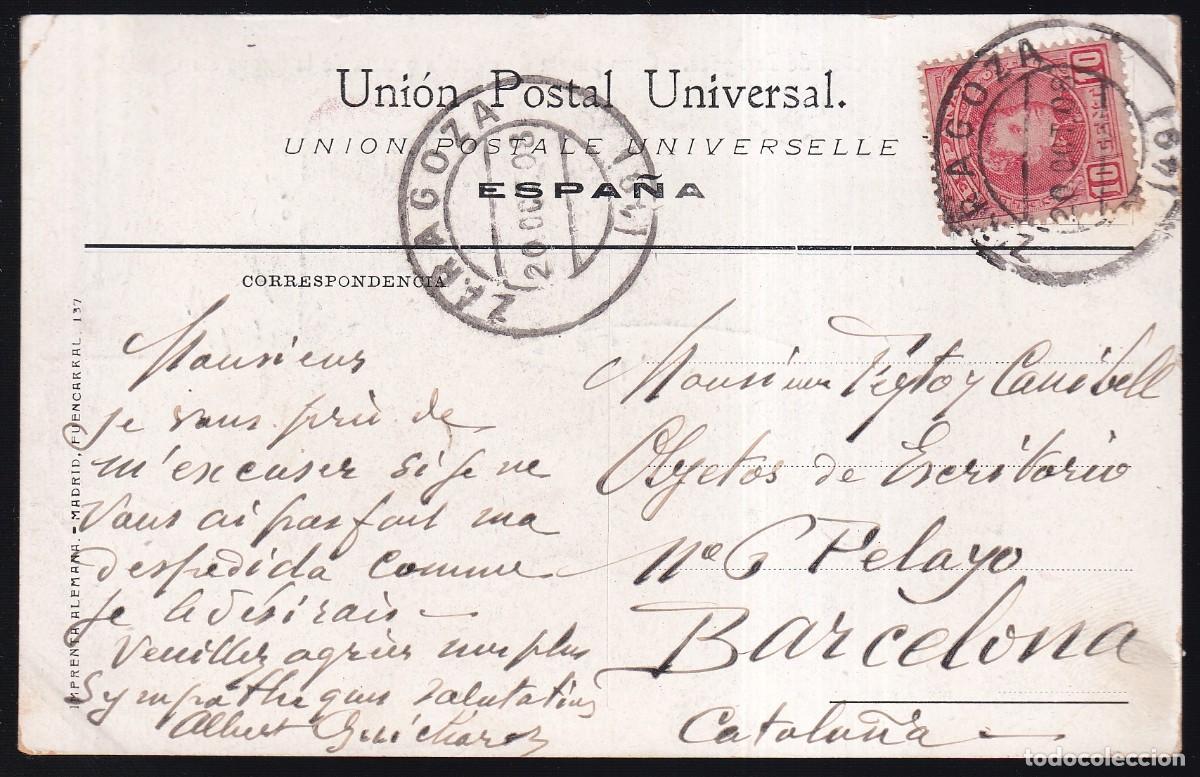 Unión Postal Universal.
UNION POSTALE UNIVERSELLE
ESPAÑA
ZARAGOZA
20 OCT 08
ZARAGOZA
20 OCT 08
10
10
CORRESPONDENCIA
IMPRENTA ALEMANA. - MADRID, FUENCARRAL. 137
Monsieur
je vous prie de
m'excuser si je ne
vous ai pas fait ma
despedida comme
je le désirais -
Veuillez agréer mes plus
Sympathiques salutations
Albert
Monsieur
Objetos de Escritorio
Nº 6 Pelayo
Barcelona
Cataluña
todocoleccion